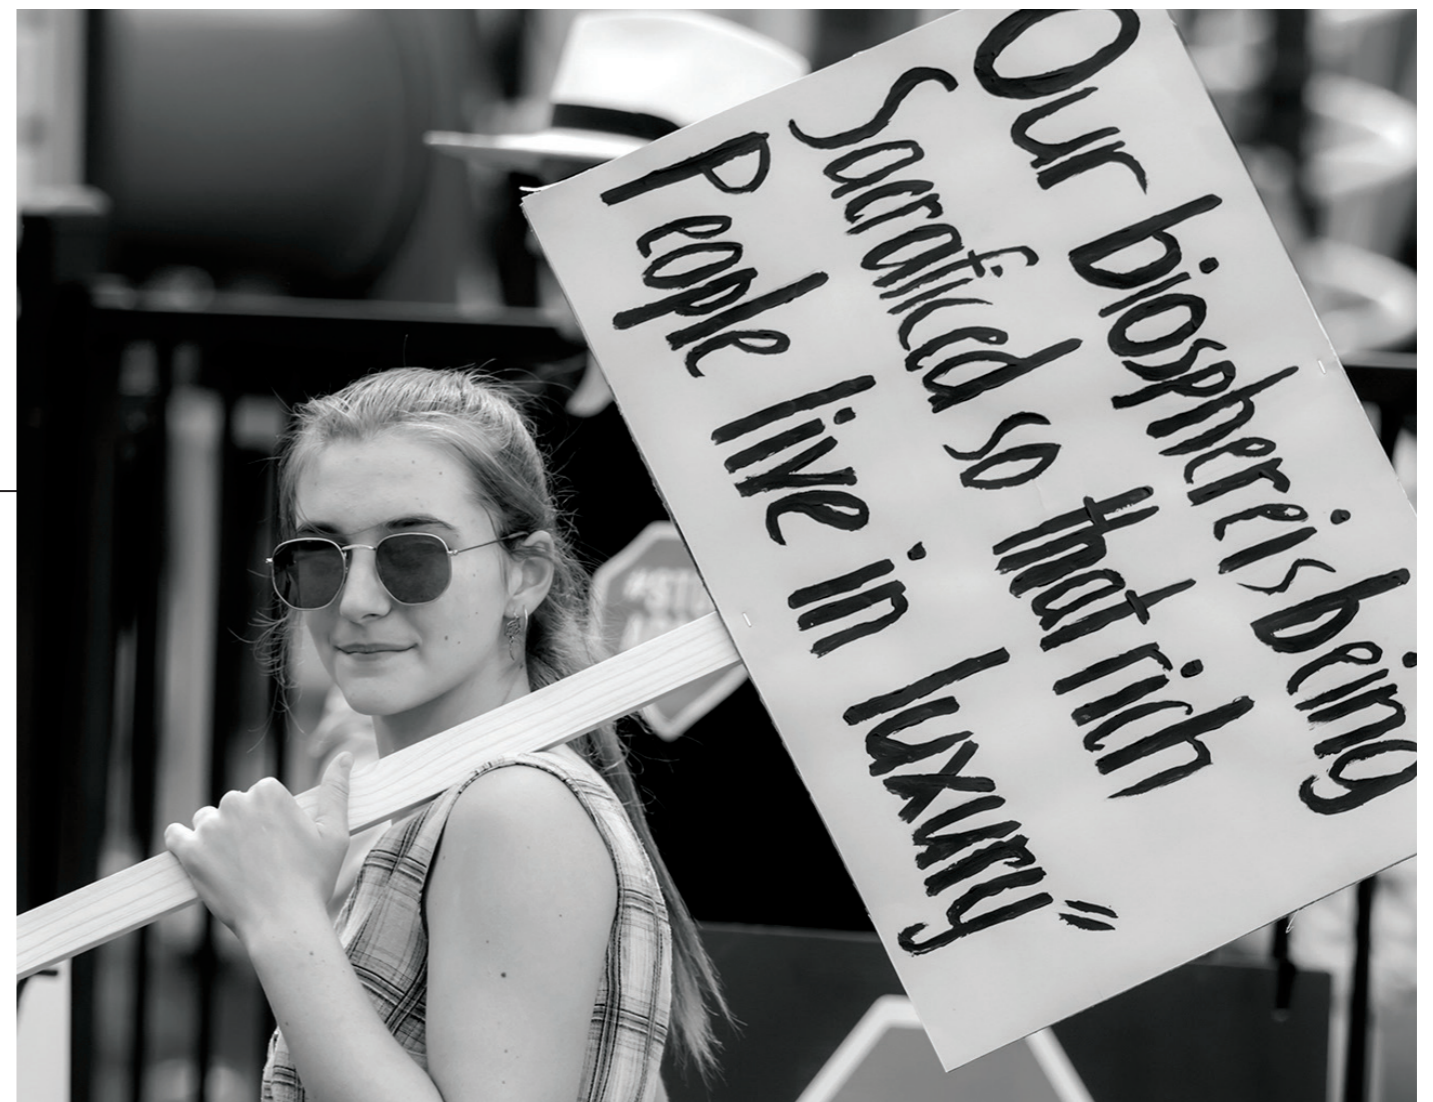 Our biosphere is being
Sacraficed so that rich
People live in luxury"
#STO